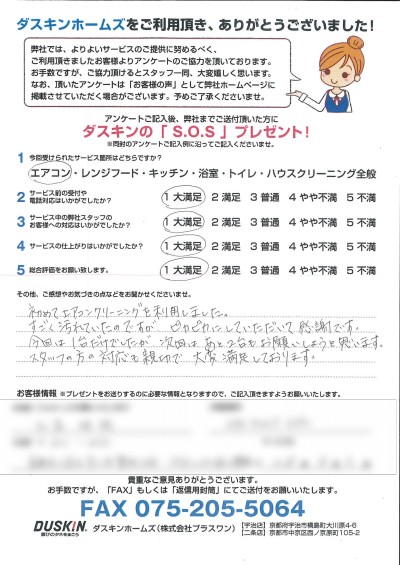 ダスキンホームズをご利用頂き、ありがとうございました!
弊社では、よりよいサービスのご提供に努めるべく、
ご利用頂きましたお客様よりアンケートのご協力を頂いております。
お手数ですが、ご協力頂けるとスタッフ一同、大変嬉しく思います。
なお、頂いたアンケートは「お客様の声」として弊社ホームページに
掲載させていただく場合がございます。予めご了承くださいませ。
アンケートご記入後、弊社までご送付頂いた方に
ダスキンの「S.O.S」プレゼント!
※同封のアンケートご記入例に沿ってご記入くださいませ。
1 今回受けられたサービス箇所はどちらですか?
エアコン・レンジフード・キッチン・浴室・トイレ・ハウスクリーニング全般
2 サービス前の受付や
電話対応はいかがでしたか?
1 大満足 2 満足 3 普通 4 やや不満 5 不満
3 サービス中の弊社スタッフの
お客様への対応はいかがでしたか?
1 大満足 2 満足 3 普通 4 やや不満 5 不満
4 サービスの仕上がりはいかがでしたか?
1 大満足 2 満足 3 普通 4 やや不満 5 不満
5 総合評価をお願い致します。
1 大満足 2 満足 3 普通 4 やや不満 5 不満
その他、ご感想やお気づきの点などをお聞かせくださいませ。
初めてエアコンクリーニングを利用しました。
すごく汚れていたのですが ピカピカにしていただいて感謝です。
今回は1台だけでしたが 次回はあと2台もお願いしようと思います。
スタッフの方の対応も親切で 大変満足しております。
お客様情報 ※プレゼントをお送りするのに必要な情報となりますので、ご記入頂きますようお願いいたします。
貴重なご意見ありがとうございます。
お手数ですが、「FAX」もしくは「返信用封筒」にてご送付をお願いいたします。
FAX 075-205-5064
DUSKIN 喜びのタネをまこう
ダスキンホームズ(株式会社プラスワン)
【宇治店】京都府宇治市槇島町大川原4-6
【二条店】京都市中京区西ノ京原町105-2